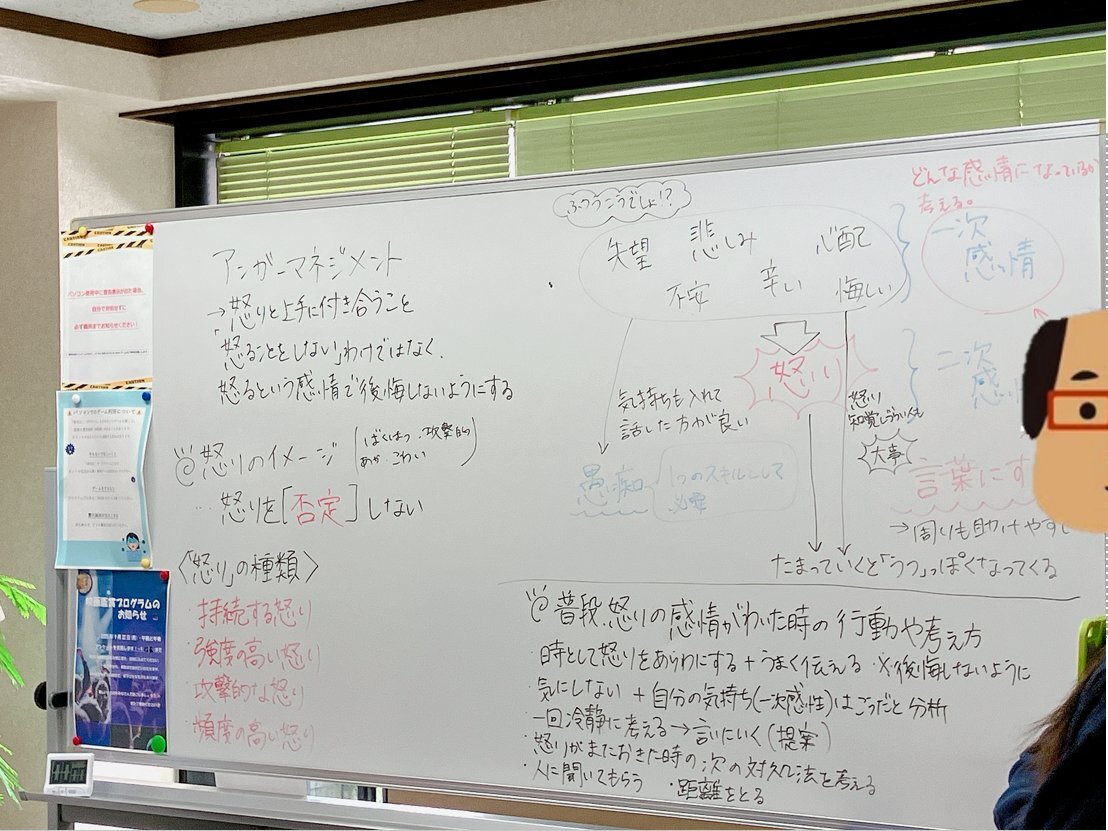 アンガーマネジメント
→怒りと上手に付き合うこと
「怒ることをしない」わけではなく、
怒るという感情で後悔しないようにする
◎怒りのイメージ(ばくはつ・攻撃的
あか・こわい)
…怒りを[否定]しない
〈「怒り」の種類〉
・持続する怒り
・強度の高い怒り
・攻撃的な怒り
・頻度の高い怒り
ふつうこうでしょ!?
失望 悲しみ 心配
不安 辛い 悔しい
どんな感情になっているか
考える。
一次
感情
怒り
二次
気持ちも入れて
話した方が良い
愚痴
1つのスキルとして
必要
怒り
大事
言葉にす
→周りも助けやす
たまっていくと「うつ」っぽくなってくる
◎普段、怒りの感情がわいた時の行動や考え方
・時として怒りをあらわにする+うまく伝える ※後悔しないように
・気にしない+自分の気持ち(一次感性)はこうだと分析
・一回冷静に考える→言いにいく(提案)
・怒りがまたおきた時の次の対処法を考える
・人に聞いてもらう ・距離をとる
CAUTION CAUTION CAUTION
パソコン使用中に警告表示が出た場合、
自分で対処せずに
必ず職員までお知らせください!
CAUTION CAUTION
映画鑑賞プログラムの
お知らせ